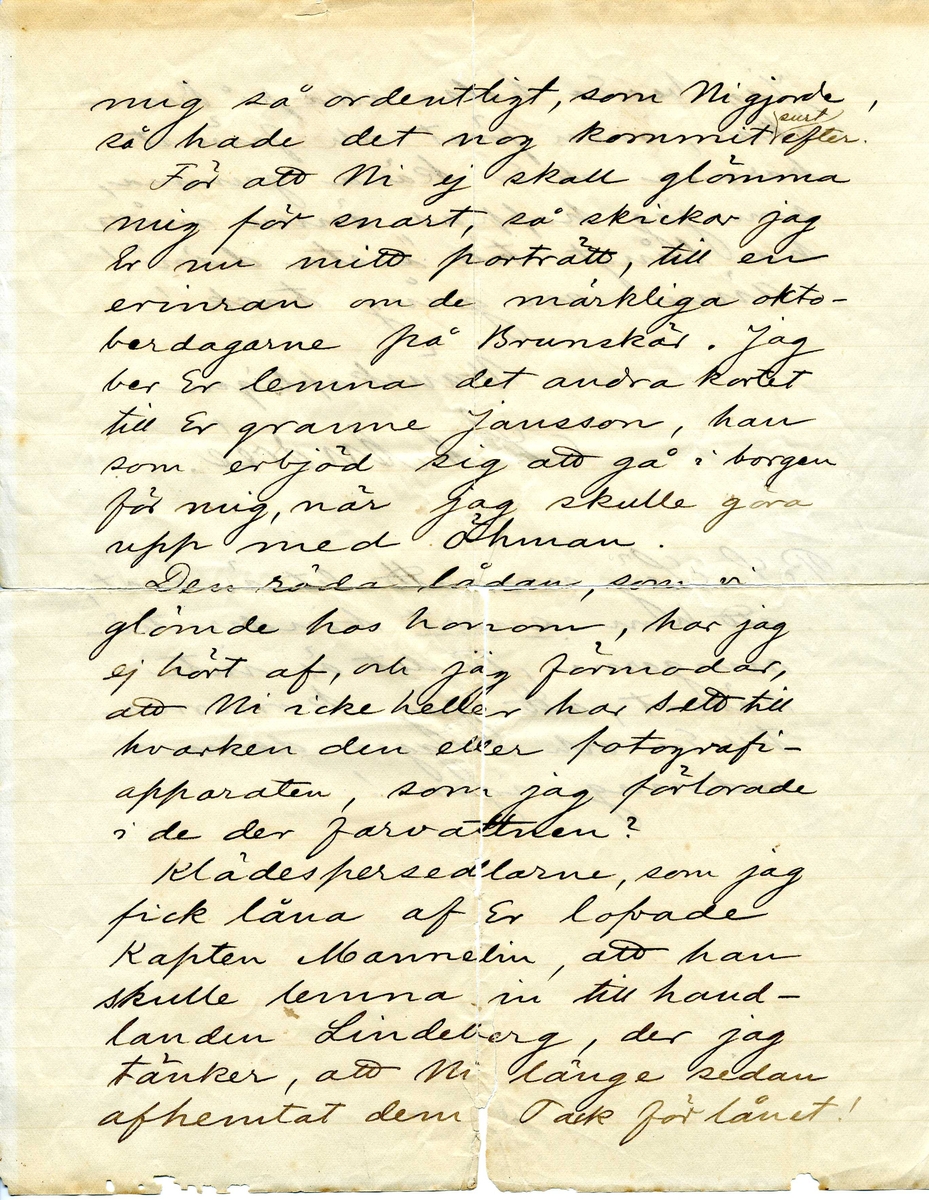 mig så ordentligt, som Ni gjorde,
så hade det nog kommit surt efter.
För att Ni ej skall glömma
mig för snart, så skickar jag
Er nu mitt porträtt, till en
erinran om de märkliga okto-
berdagarne på Brunskär. Jag
ber Er lemna det andra kortet
till Er granne Jansson, han
som erbjöd sig att gå i borgen
för mig, när jag skulle göra
upp med Öhman.
Den röda lådan, som vi
glömde hos honom, har jag
ej hört af, och jag förmodar,
att Ni icke heller har sett till
hvarken den eller fotografi-
apparaten, som jag förlorade
i de der farvattnen?
Klädespersedlarne, som jag
fick låna af Er lofvade
Kapten Mannelin, att han
skulle lemna in till hand-
landen Lindeberg, der jag
tänker, att Ni länge sedan
afhemtat dem Tack för lånet!